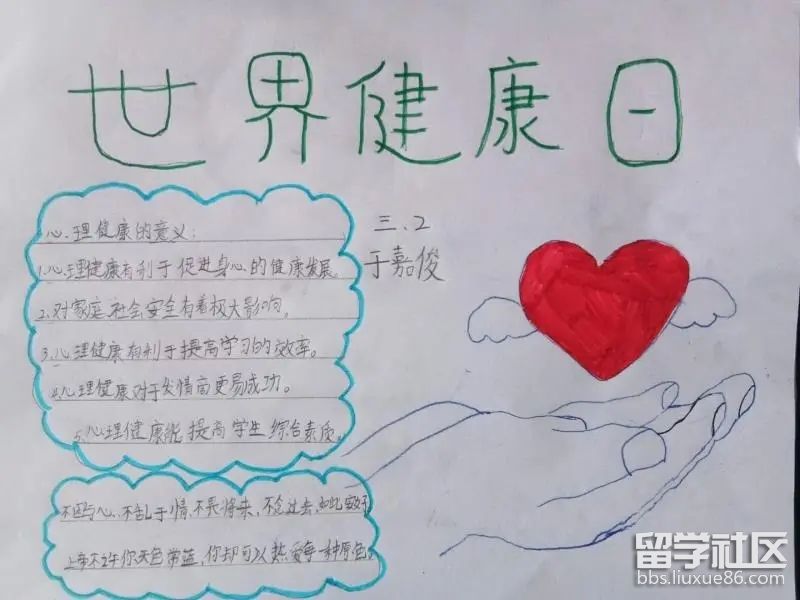 世界健康日
三.2
于嘉俊
心理健康的意义:
1.心理健康有利于促进身心的健康发展。
2.对家庭、社会安全有着极大影响。
3.心理健康有利于提高学习的效率。
4.心理健康对于情商更易成功。
5.心理健康能提高学生综合素质。
不困与心、不乱于情,不畏将来,不念过去,如此安好
上帝不许你天色常蓝,你却可以热爱每一种原色。
留学社区
bbs.liuxue86.com